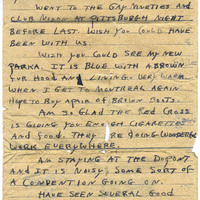 WENT TO THE GAY NINETIES AND
CLUB AT PITTSBURGH NIGHT
BEFORE LAST. WISH YOU COULD HAVE
BEEN WITH US.
WISH YOU COULD SEE MY NEW
PARKA. IT IS BLUE WITH A BROWN
FUR HOOD AND LINING. VERY WARM.
WHEN I GET TO MONTREAL AGAIN
HOPE TO BUY A PAIR OF BROWN BOOTS.
AM SO GLAD THE RED CROSS
IS GIVING YOU ENOUGH CIGARETTES
AND FOOD. THEY'RE DOING WONDERFUL
WORK EVERYWHERE.
AM STAYING AT THE DUPONT
AND IT IS NOISY. SOME SORT OF
A CONVENTION GOING ON.
HAVE SEEN SEVERAL GOOD